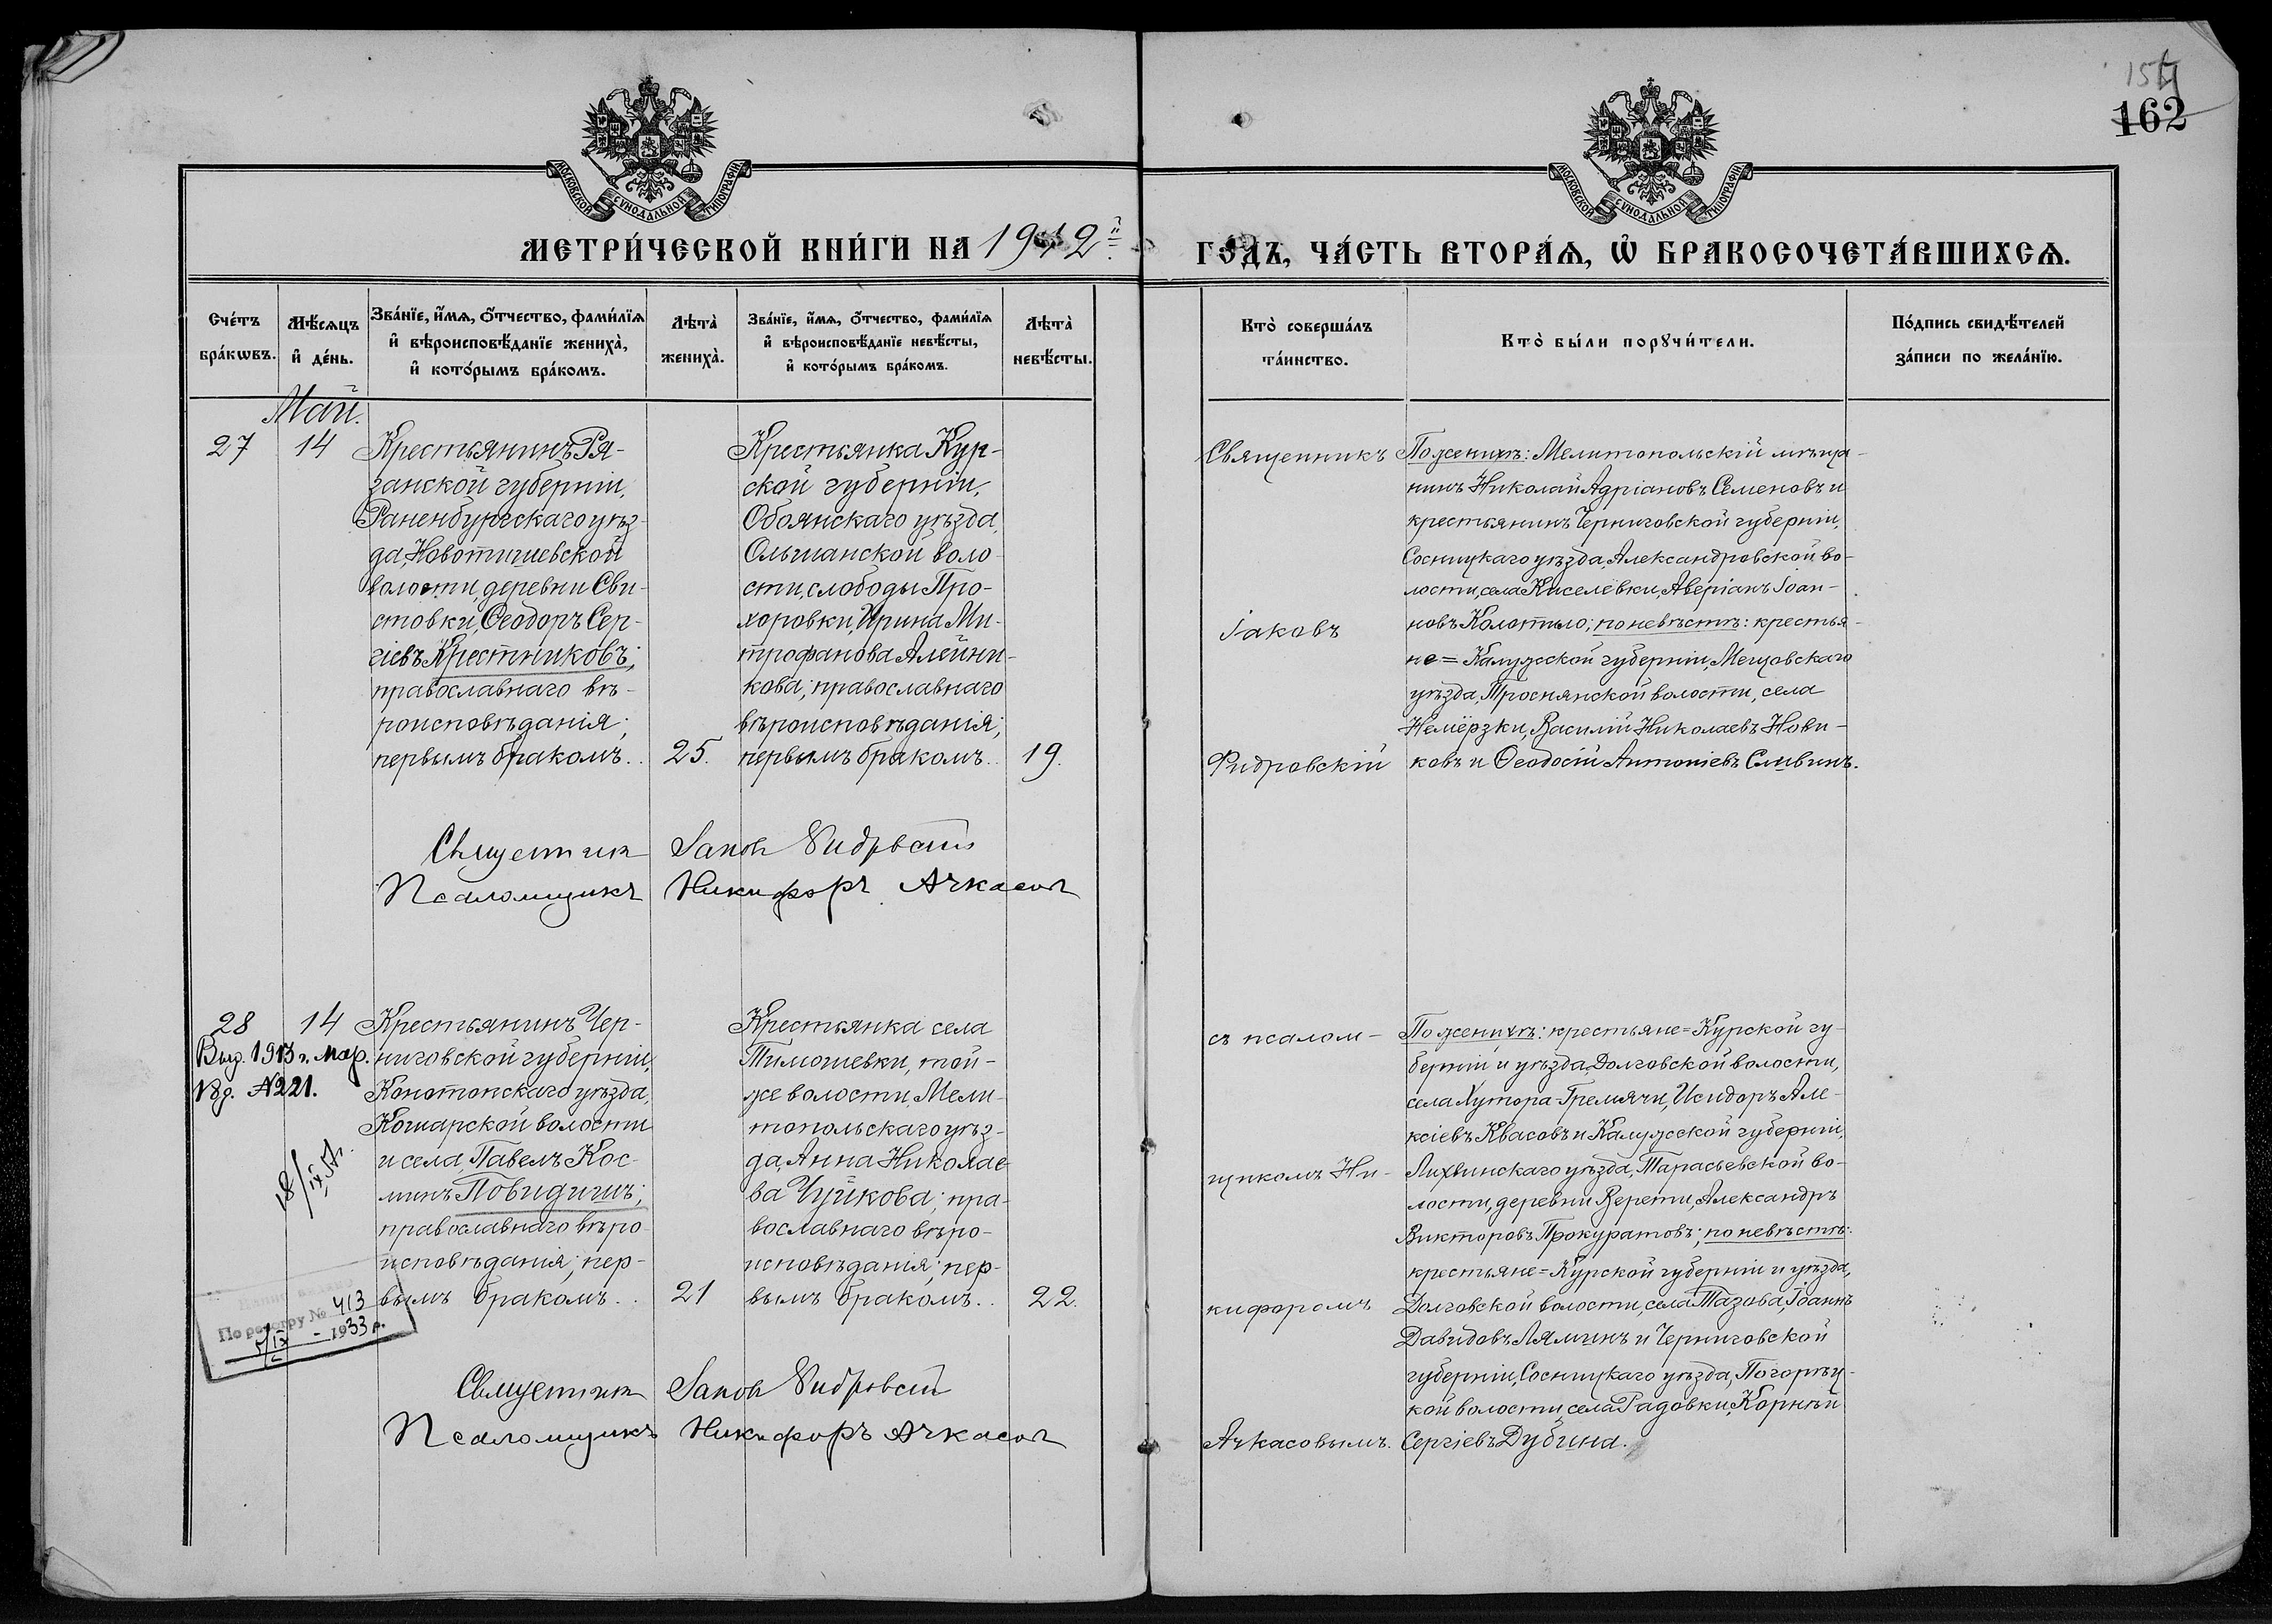 154
162
МОСКОВСКОЙ СУНОДАЛЬНОЙ ТИПОГРАФІИ
МОСКОВСКОЙ СУНОДАЛЬНОЙ ТИПОГРАФІИ
МЕТРИ́ЧЕСКОЙ КНИ́ГИ НА 1912й ГОДЪ, ЧА́СТЬ ВТОРА́Ѧ, Ѡ҆ БРАКОСОЧЕТА́ВШИХСѦ.
Сче́тъ бра́кѡвъ.
Мѣ́сѧцъ и҆ де́нь.
Зва́нїе, и҆́мѧ, ѻ҆́тчество, фами́лїѧ и҆ вѣроисповѣ́данїе жениха̀, и҆ кото́рымъ бра́комъ.
Лѣта̀ жениха̀.
Зва́нїе, и҆́мѧ, ѻ҆́тчество, фами́лїѧ и҆ вѣроисповѣ́данїе невѣ́сты, и҆ кото́рымъ бра́комъ.
Лѣта̀ невѣ́сты.
Кто̀ соверша́лъ та́инство.
Кто̀ бы́ли порꙋчи́тели.
По́дпись свидѣ́телей за́писи по жела́нїю.
Май.
27
14
Крестьянинъ Ря-
занской губерніи,
Раненбургскаго уѣз-
да, Новотишевской
волости, деревни Сви-
стовки, Ѳеодоръ Сер-
гіевъ Крестниковъ;
православнаго вѣ-
роисповѣданія;
первымъ бракомъ..
25.
Крестьянка Кур-
ской губерніи,
Обоянскаго уѣзда,
Ольшанской воло-
сти, слободы Про-
хоровки, Ирина Ми-
трофанова Алейни-
кова; православнаго
вѣроисповѣданія;
первымъ бракомъ..
19.
Священникъ
Іаковъ
Фидровскій
По женихѣ: Мелитопольскій мѣща-
нинъ Николай Адріановъ Семеновъ и
крестьянинъ Черниговской губерніи,
Сосницкаго уѣзда, Александровской во-
лости, села Киселевки, Аверіанъ Іоан-
новъ Колотило; по невѣстѣ: крестья-
не = Калужской губерніи, Мещовскаго
уѣзда, Троснянской волости, села
Немёрзки, Василій Николаевъ Нови-
ковъ и Ѳеодосій Антоніевъ Сливинъ.
Священник Іаков Фидровскій
Псаломщикъ Никифоръ Ачкасов
28
14
Выд. 1913 г. мар.
18 д. №221.
18/IX
Крестьянинъ Чер-
ниговской губерніи,
Конотопскаго уѣзда,
Кошарской волости
и села, Павелъ Кос-
минъ Повидишъ;
православнаго вѣро-
исповѣданія; пер-
вымъ бракомъ..
21
Крестьянка села
Тимошевки, той-
же волости, Мели-
топольскаго уѣз-
да, Анна Николае-
ва Чуйкова; пра-
вославнаго вѣро-
исповѣданія; пер-
вымъ бракомъ..
22.
съ псалом-
щикомъ Ни-
кифоромъ
Ачкасовымъ.
По женихѣ: крестьяне = Курской гу-
берніи и уѣзда, Долговской волости,
села Хутора-Гремячи, Исидоръ Але-
ксіевъ Квасовъ и Калужской губерніи,
Лихвинскаго уѣзда, Тарасьевской во-
лости, деревни Верети, Александръ
Викторовъ Прокуратовъ; по невѣстѣ:
крестьяне = Курской губерніи и уѣзда,
Долговской волости, села Тазова, Іоаннъ
Давидовъ Ляминъ и Черниговской
губерніи, Сосницкаго уѣзда, Погорѣц-
кой волости, села Радовки, Корнѣй
Сергіевъ Дубина.
По реестру № 413
5/IX - 1933 р.
Священник Іаков Фидровскій
Псаломщикъ Никифоръ Ачкасов